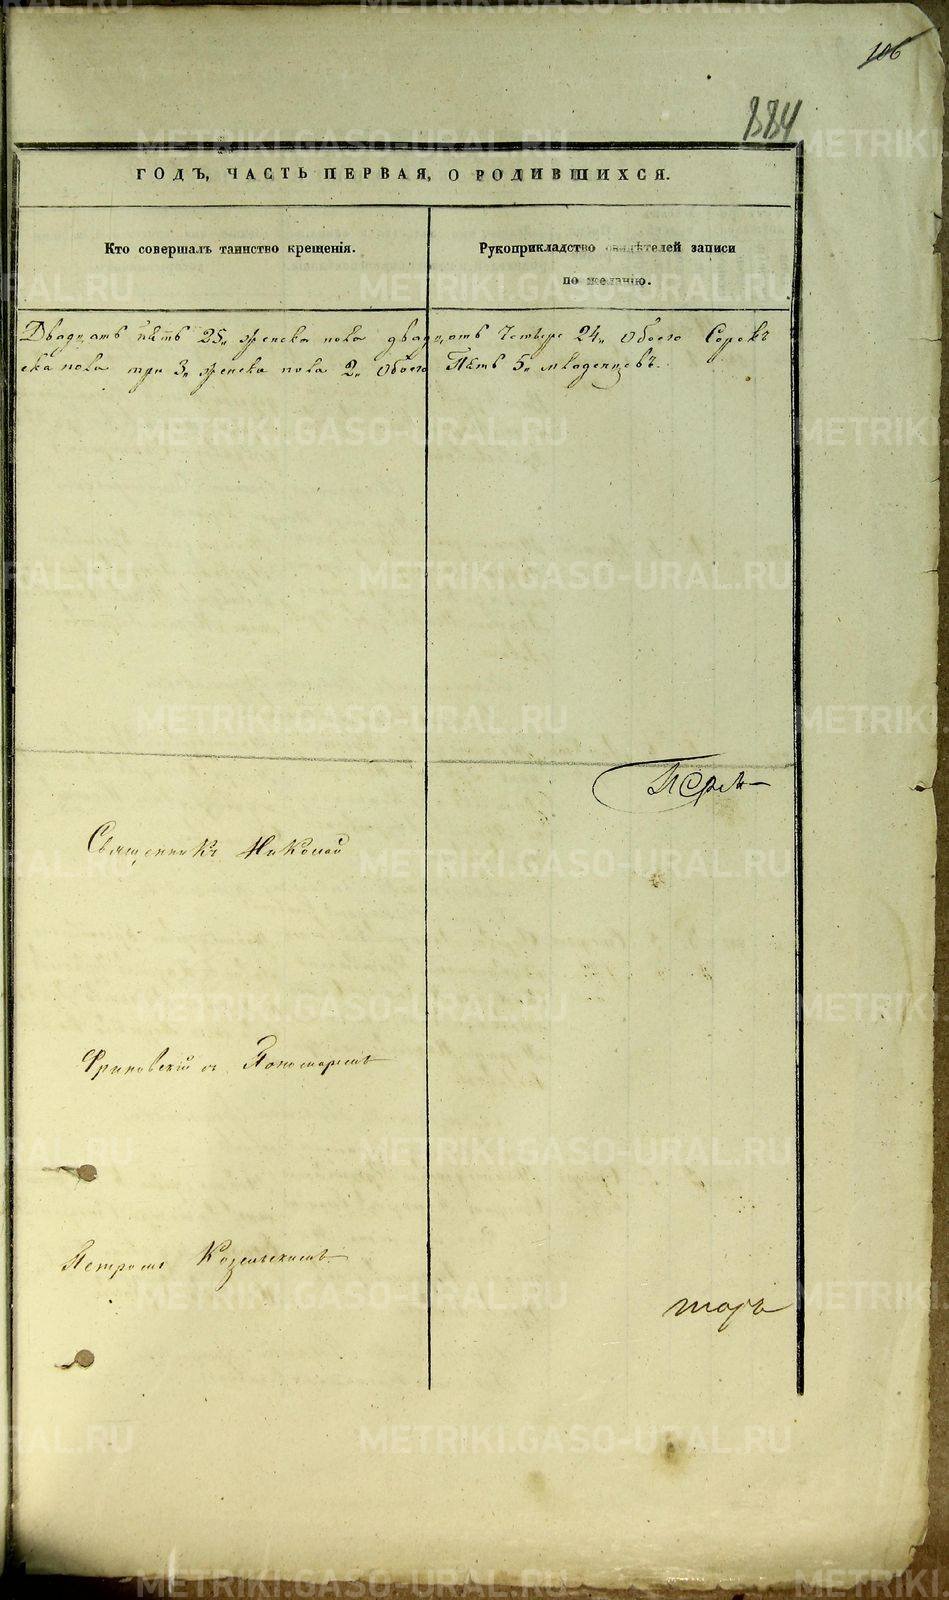 106
884
ГОДЪ, ЧАСТЬ ПЕРВАЯ, О РОДИВШИХСЯ.
Кто совершалъ таинство крещенія.
Рукоприкладство свидѣтелей записи
по желанію.
Двадцать пять 25, женска пола двадцать четыре 24, обоего Сорокъ
ска пола три 3, женска пола 2, обоего Пять 5, младенцовъ.
Священникъ Николай
Фриновскій съ Пономаремъ
Петромъ
торъ
METRIKI.GASO-URAL.RU